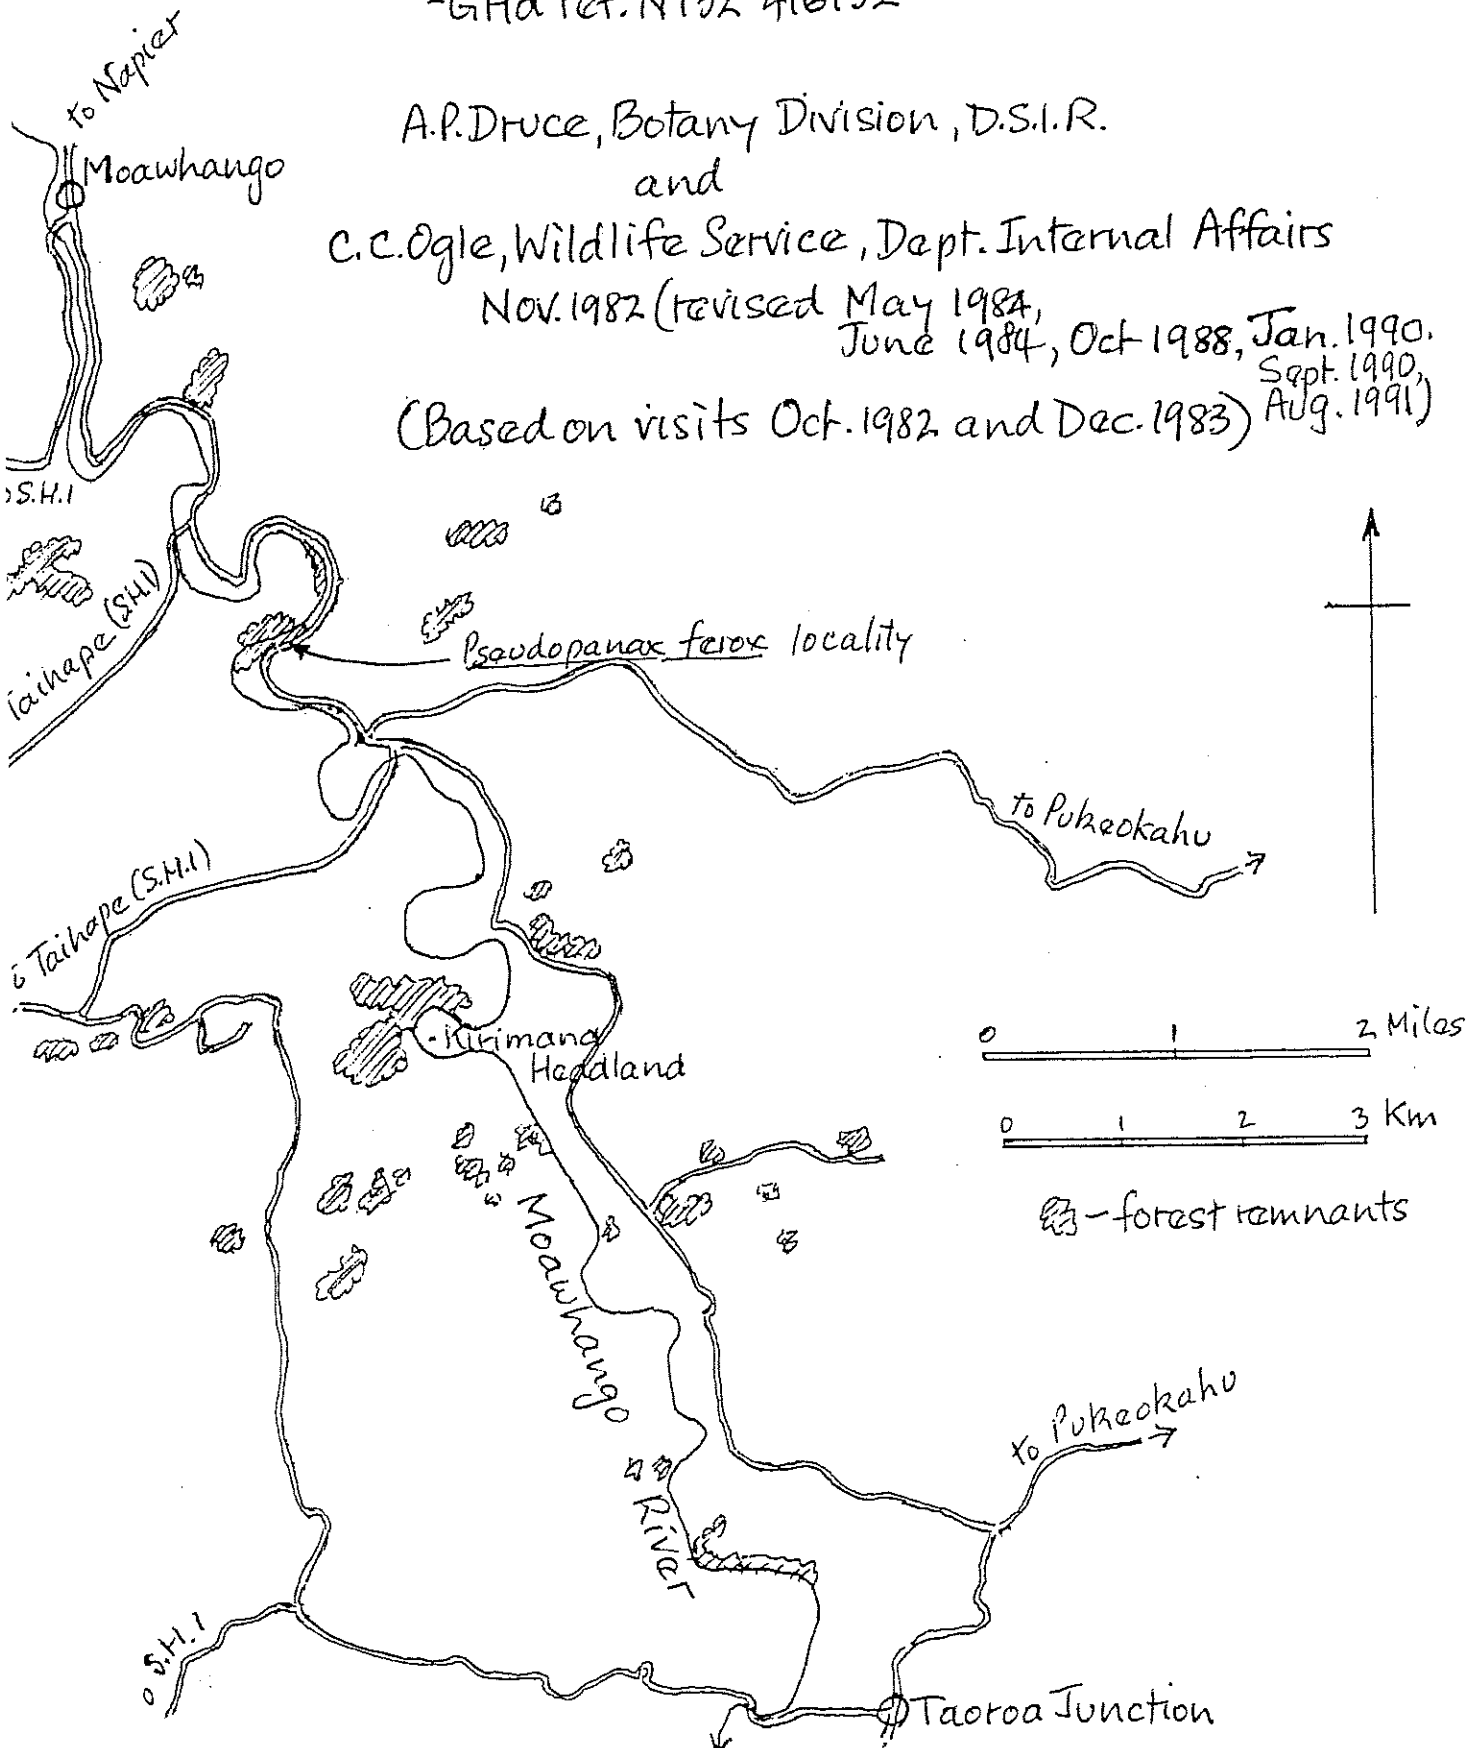 to Napier
A.P.Druce, Botany Division, D.S.I.R.
Moawhango
and
C.C.Ogle, Wildlife Service, Dept. Internal Affairs
Nov. 1982 (revised May 1984,
June 1984, Oct 1988, Jan. 1990.
Sept. 1990,
(Based on visits Oct. 1982 and Dec. 1983) Aug. 1991)
S.H.1
Taihape (S.H.1)
Pseudopanax ferox locality
to Pukeokahu
Taihape (S.H.1)
0 1 2 Miles
Kirimana
Headland
0 1 2 3 Km
- forest remnants
Moawhango
River
to Pukeokahu
o S.H.1
Taoroa Junction